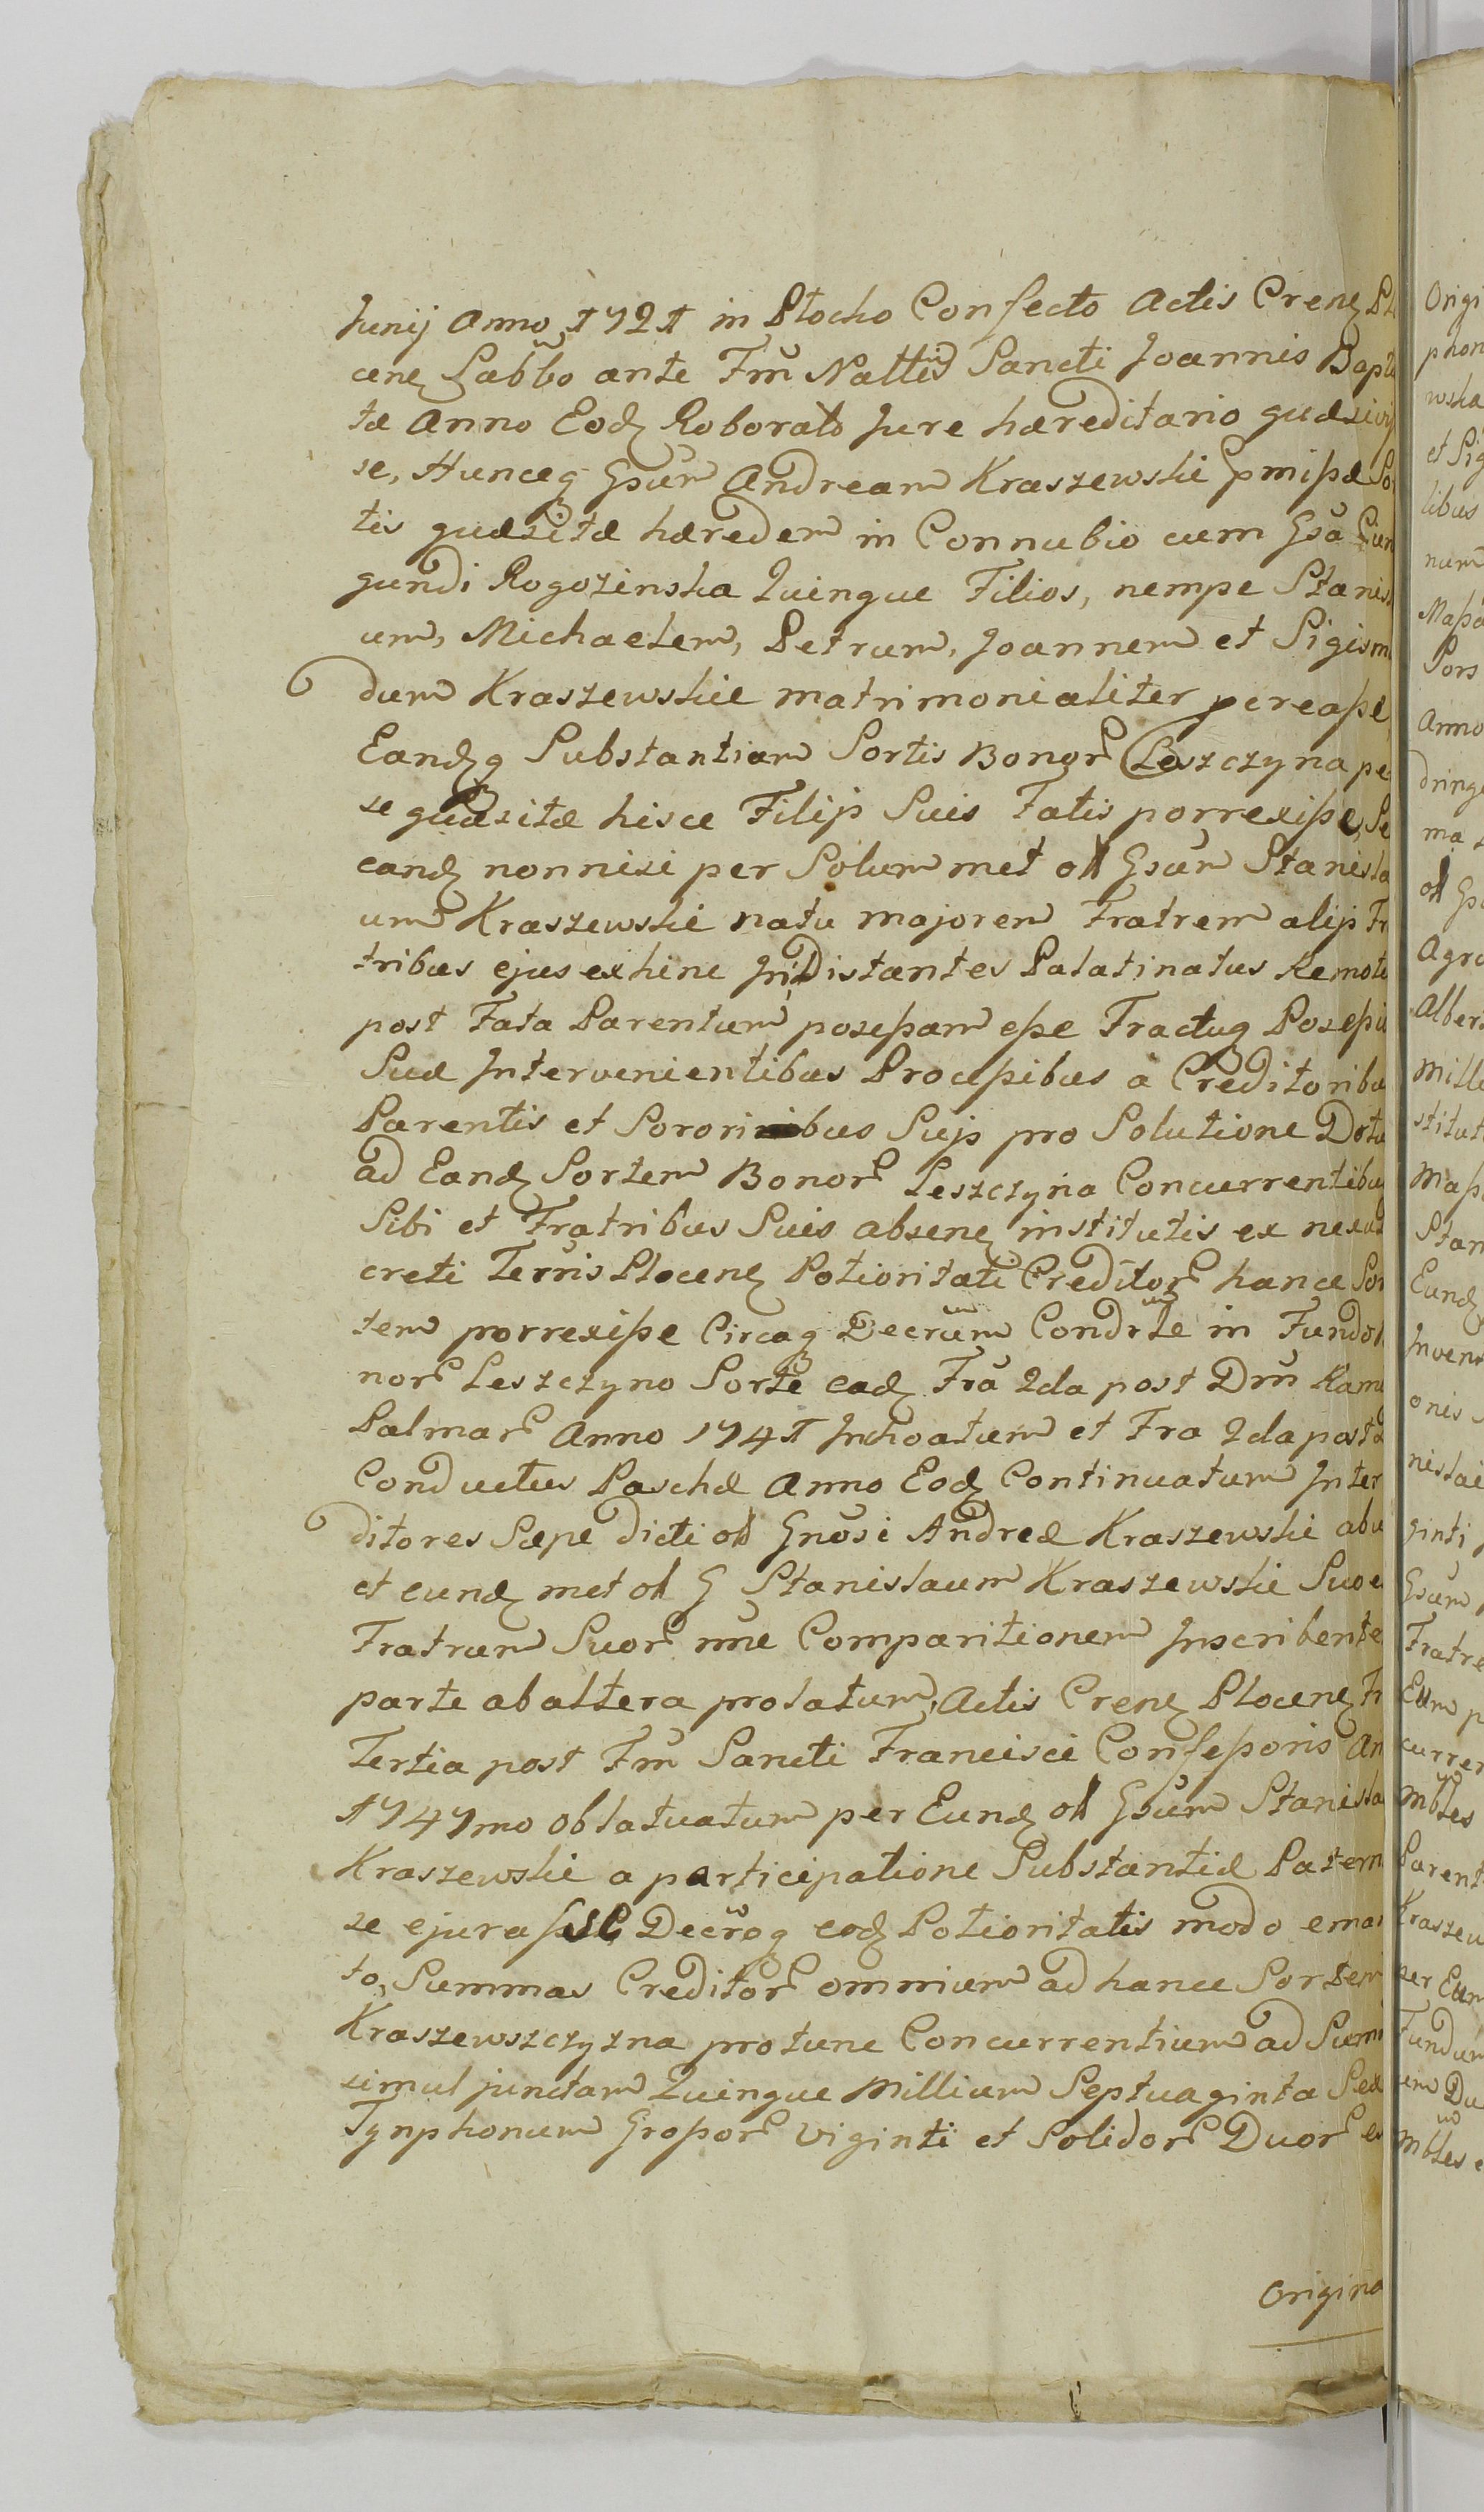 Junij Anno 1721 in Plocko Confecto Actis Crenẽ Pl
cenẽ Sabbo ante Frũ Nattẽ Sancti Joannis Bapti
tæ Anno Eodẽ Roborato Jure hæreditario quæsivi
se, Huncq Gsum Andream Kraszewski pmißæ So
tis quæsitæ hæredem in Connubio cum Gsa Cun
gundi Rogozinska Quinque Filios, nempe Stanis
um, Michaelem, Petrum, Joannem et Sigism
dum Kraszewskie matrimonialiter pereaße,
Eandẽq Substantiam Sortis Bonor Leszczyna pe
se quæsitæ hisce Filijs Suis Fatis porrexiße, Se
eandẽ nonnisi per Solummet ol Gsum Stanisla
um Kraszewski natu majorem Fratrem alijs Fr
tribus ejus exhinc in Distantes Palatinatus Remotis
post Fata Parentum poseßam eße Tractuq Poseßio
Suæ Intervenientibus Proceßibus a Creditoribus
Parentis et Sororibus Sujs pro Solutione Dotu
ad Eandẽ Sortem Bonor Leszczyna Concurrentibus
Sibi et Fratribus Suis absenẽ institutis ex nexu
creti Terris Plocenẽ Potioritati Creditor hance Sor
tem porrexiße Circaq Decrũm Condrte in Fundo
nor Leszczyno Sorte eadẽ Fra 2da post Drũ Ram
Palmar Anno 1741 Inchoatum et Fra 2da post
Conductus Paschæ Anno Eodẽ Continuatum Inter
ditores Sæpe dicti ol Gnosi Andreæ Kraszewski abu
et eundẽ met ol G Stanislaum Kraszewskie Suo e
Fratrum Suor nne Comparitionem Inscribente
parte ab altera prolatum, Actis Crenẽ Plocenẽ Fr
Tertia post Frũ Sancti Francisci Confeßoris An
1747mo oblatuatum per Eundẽ ol Gsum Stanisla
Kraszewski a participatione Substantiæ Patern
se ejuraße Decroq eodẽ Potioritatis modo eman
to, Summas Creditor omnium ad hance Sortem
Kraszewszczyzna protunc Concurrentium ad Sum
simul junctam Quinque Millium Septuaginta Sex
Tynphonum Großor Viginti et Solidor Duor ex
Origina
Origi
phon
wska
et Sig
libus
num
Maßa
Sors
Anno
dringe
ma
ol Gs
Agro
Alber
Mille
stitut
Maß
Stan
Eundẽ
Inven
onis
nislai
ginti
Gsum
Fratre
Eum p
curren
mbles
Parent
Kraszew
per Eum
Fundum
em Du
mbles e